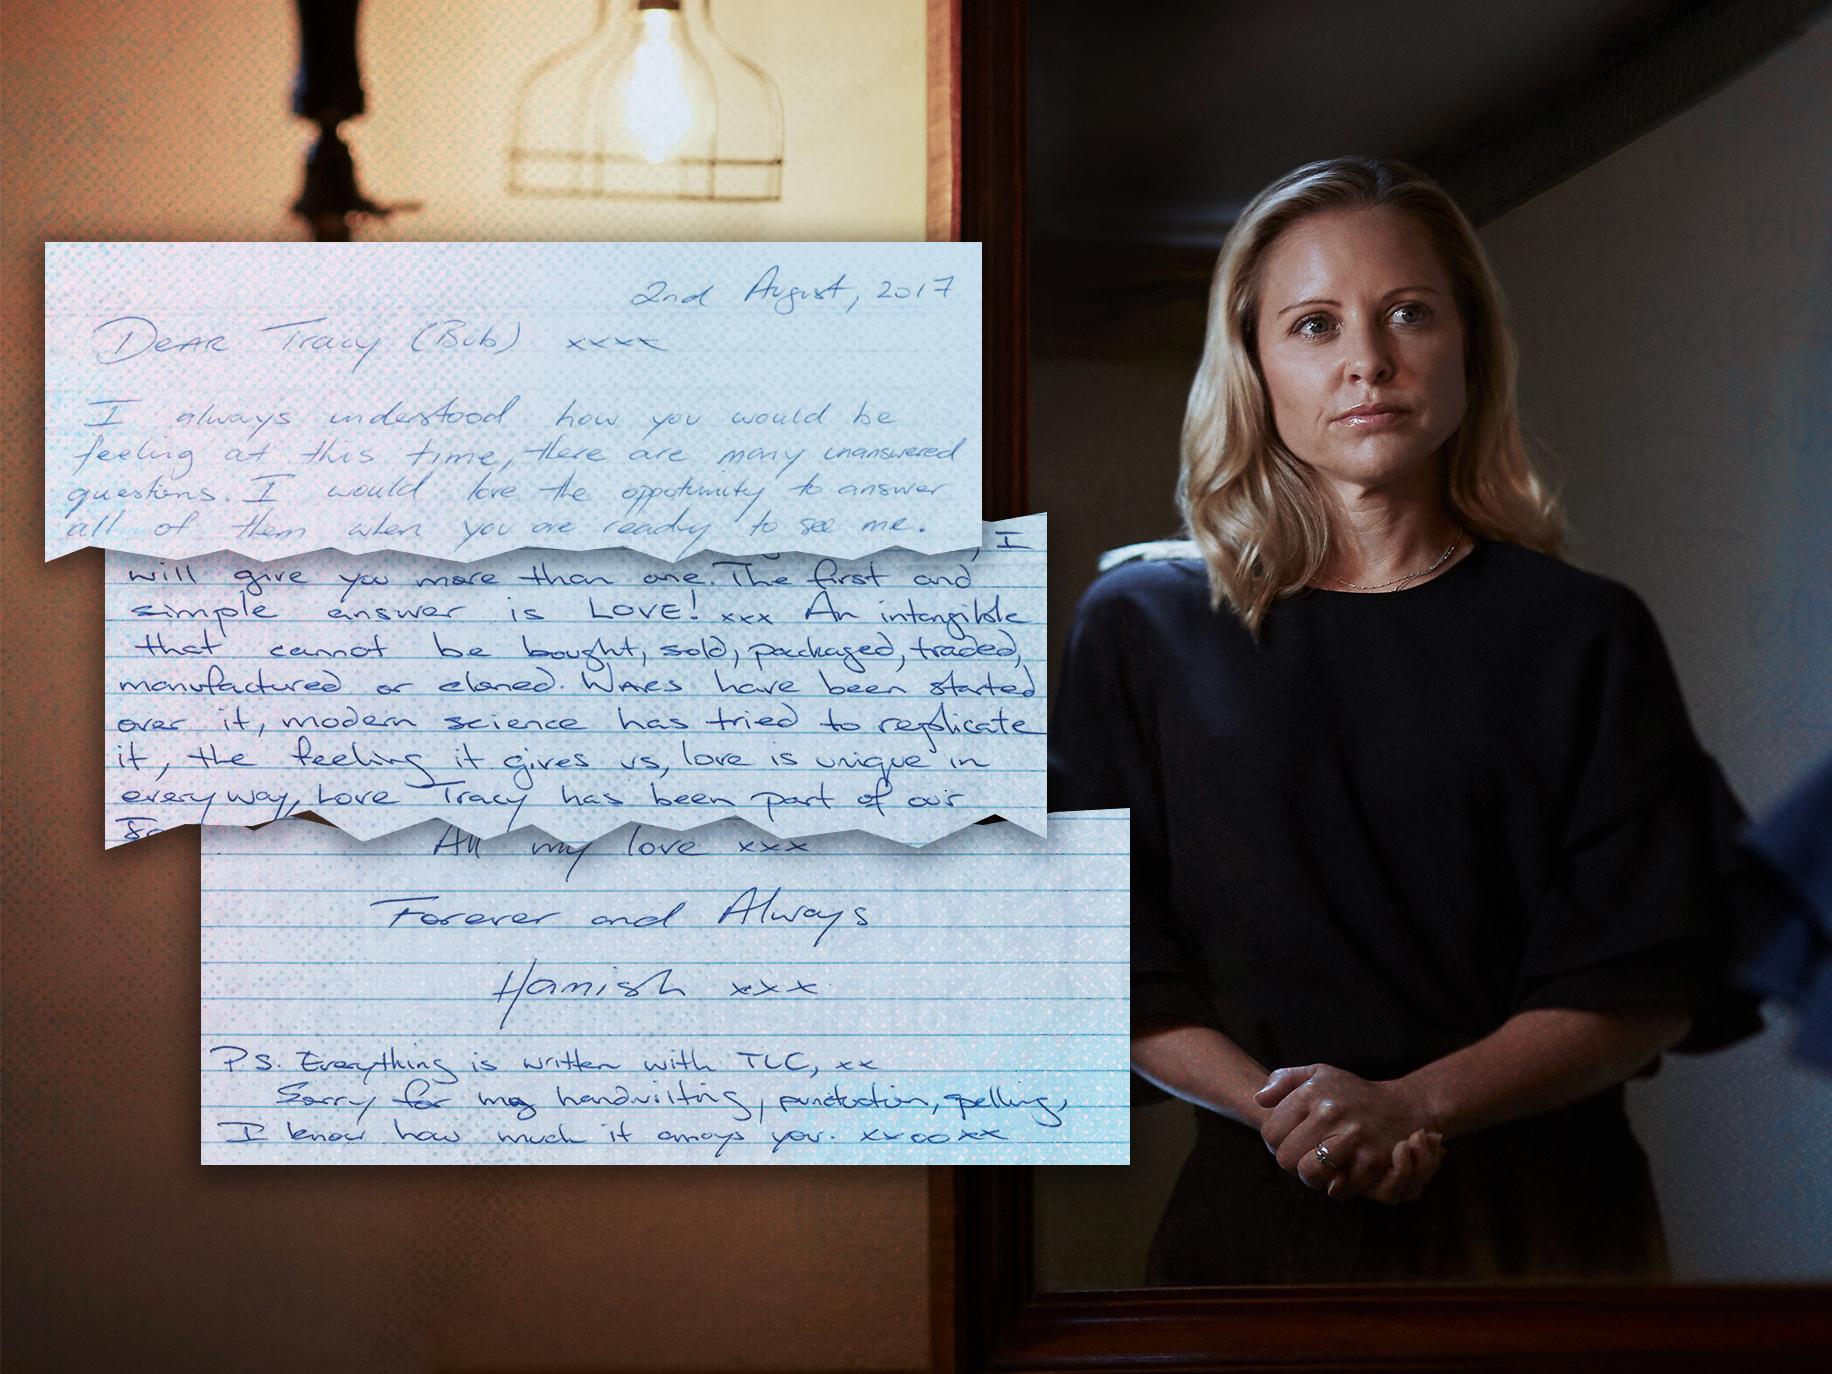 2nd August, 2017
Dear Tracy (Bub) xxxx
I always understood how you would be
feeling at this time, there are many unanswered
questions. I would love the opportunity to answer
all of them when you are ready to see me.
, I
will give you more than one. The first and
simple answer is LOVE! xxx An intangible
that cannot be bought, sold, packaged, traded,
manufactured or cloned. Wars have been started
over it, modern science has tried to replicate
it, the feeling it gives us, love is unique in
every way, Love Tracy has been part of our
All my love xxx
Forever and Always
Hamish xxx
P.S. Everything is written with TLC, xx
Sorry for my handwriting, punctuation, spelling,
I know how much it annoys you. xxooxx